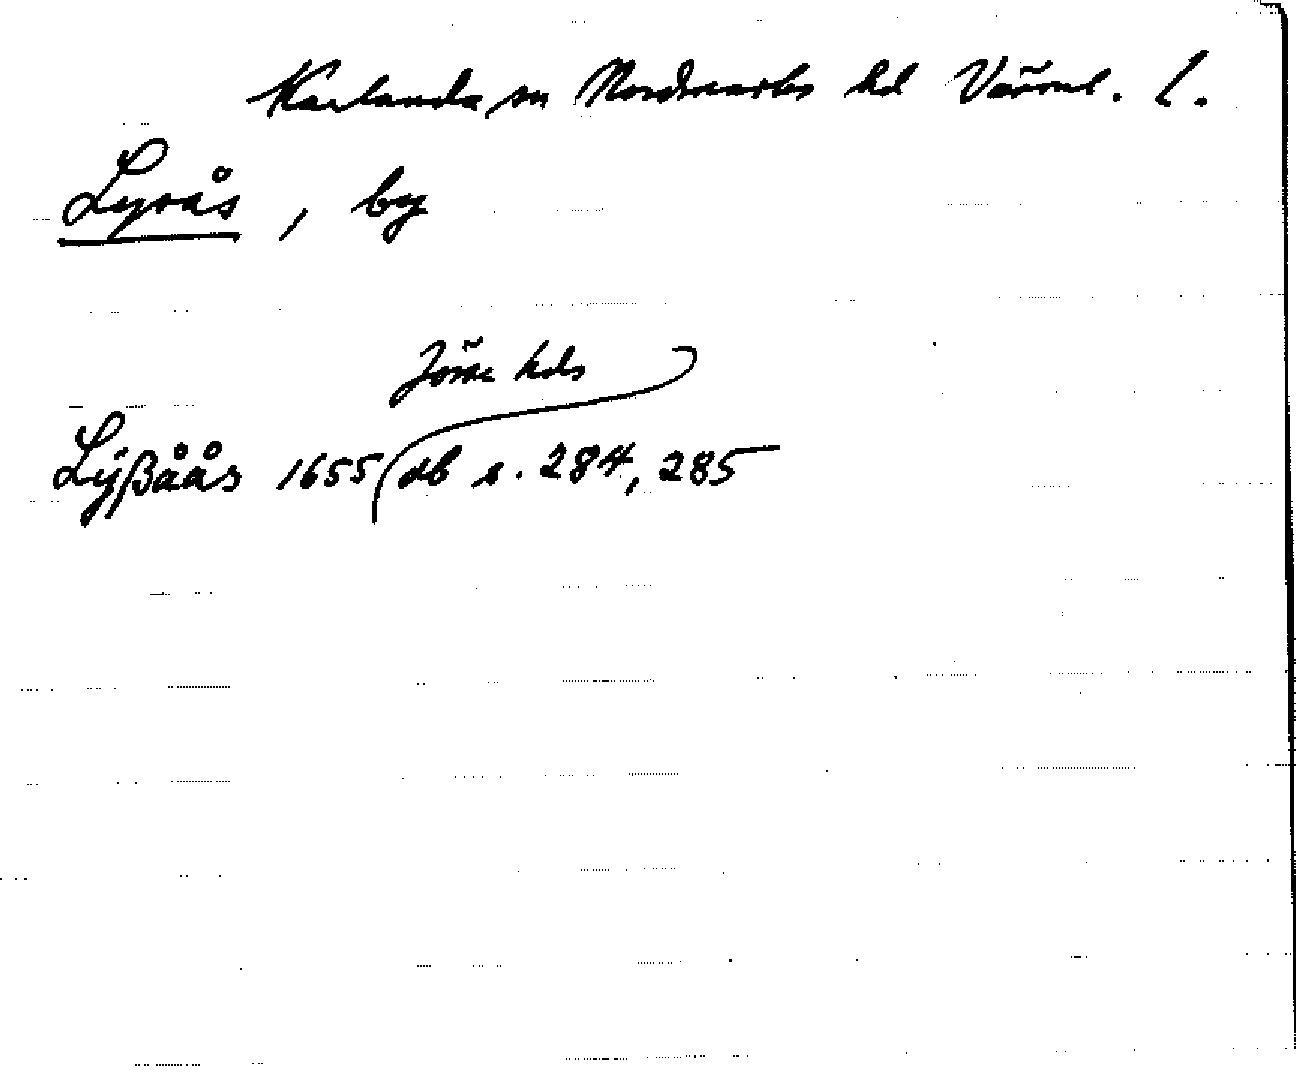 Karlanda sn Nordmarks hd Värml. l.
Lyrås, by
Jösse hds
Lÿßåås 1655 db s. 284, 285